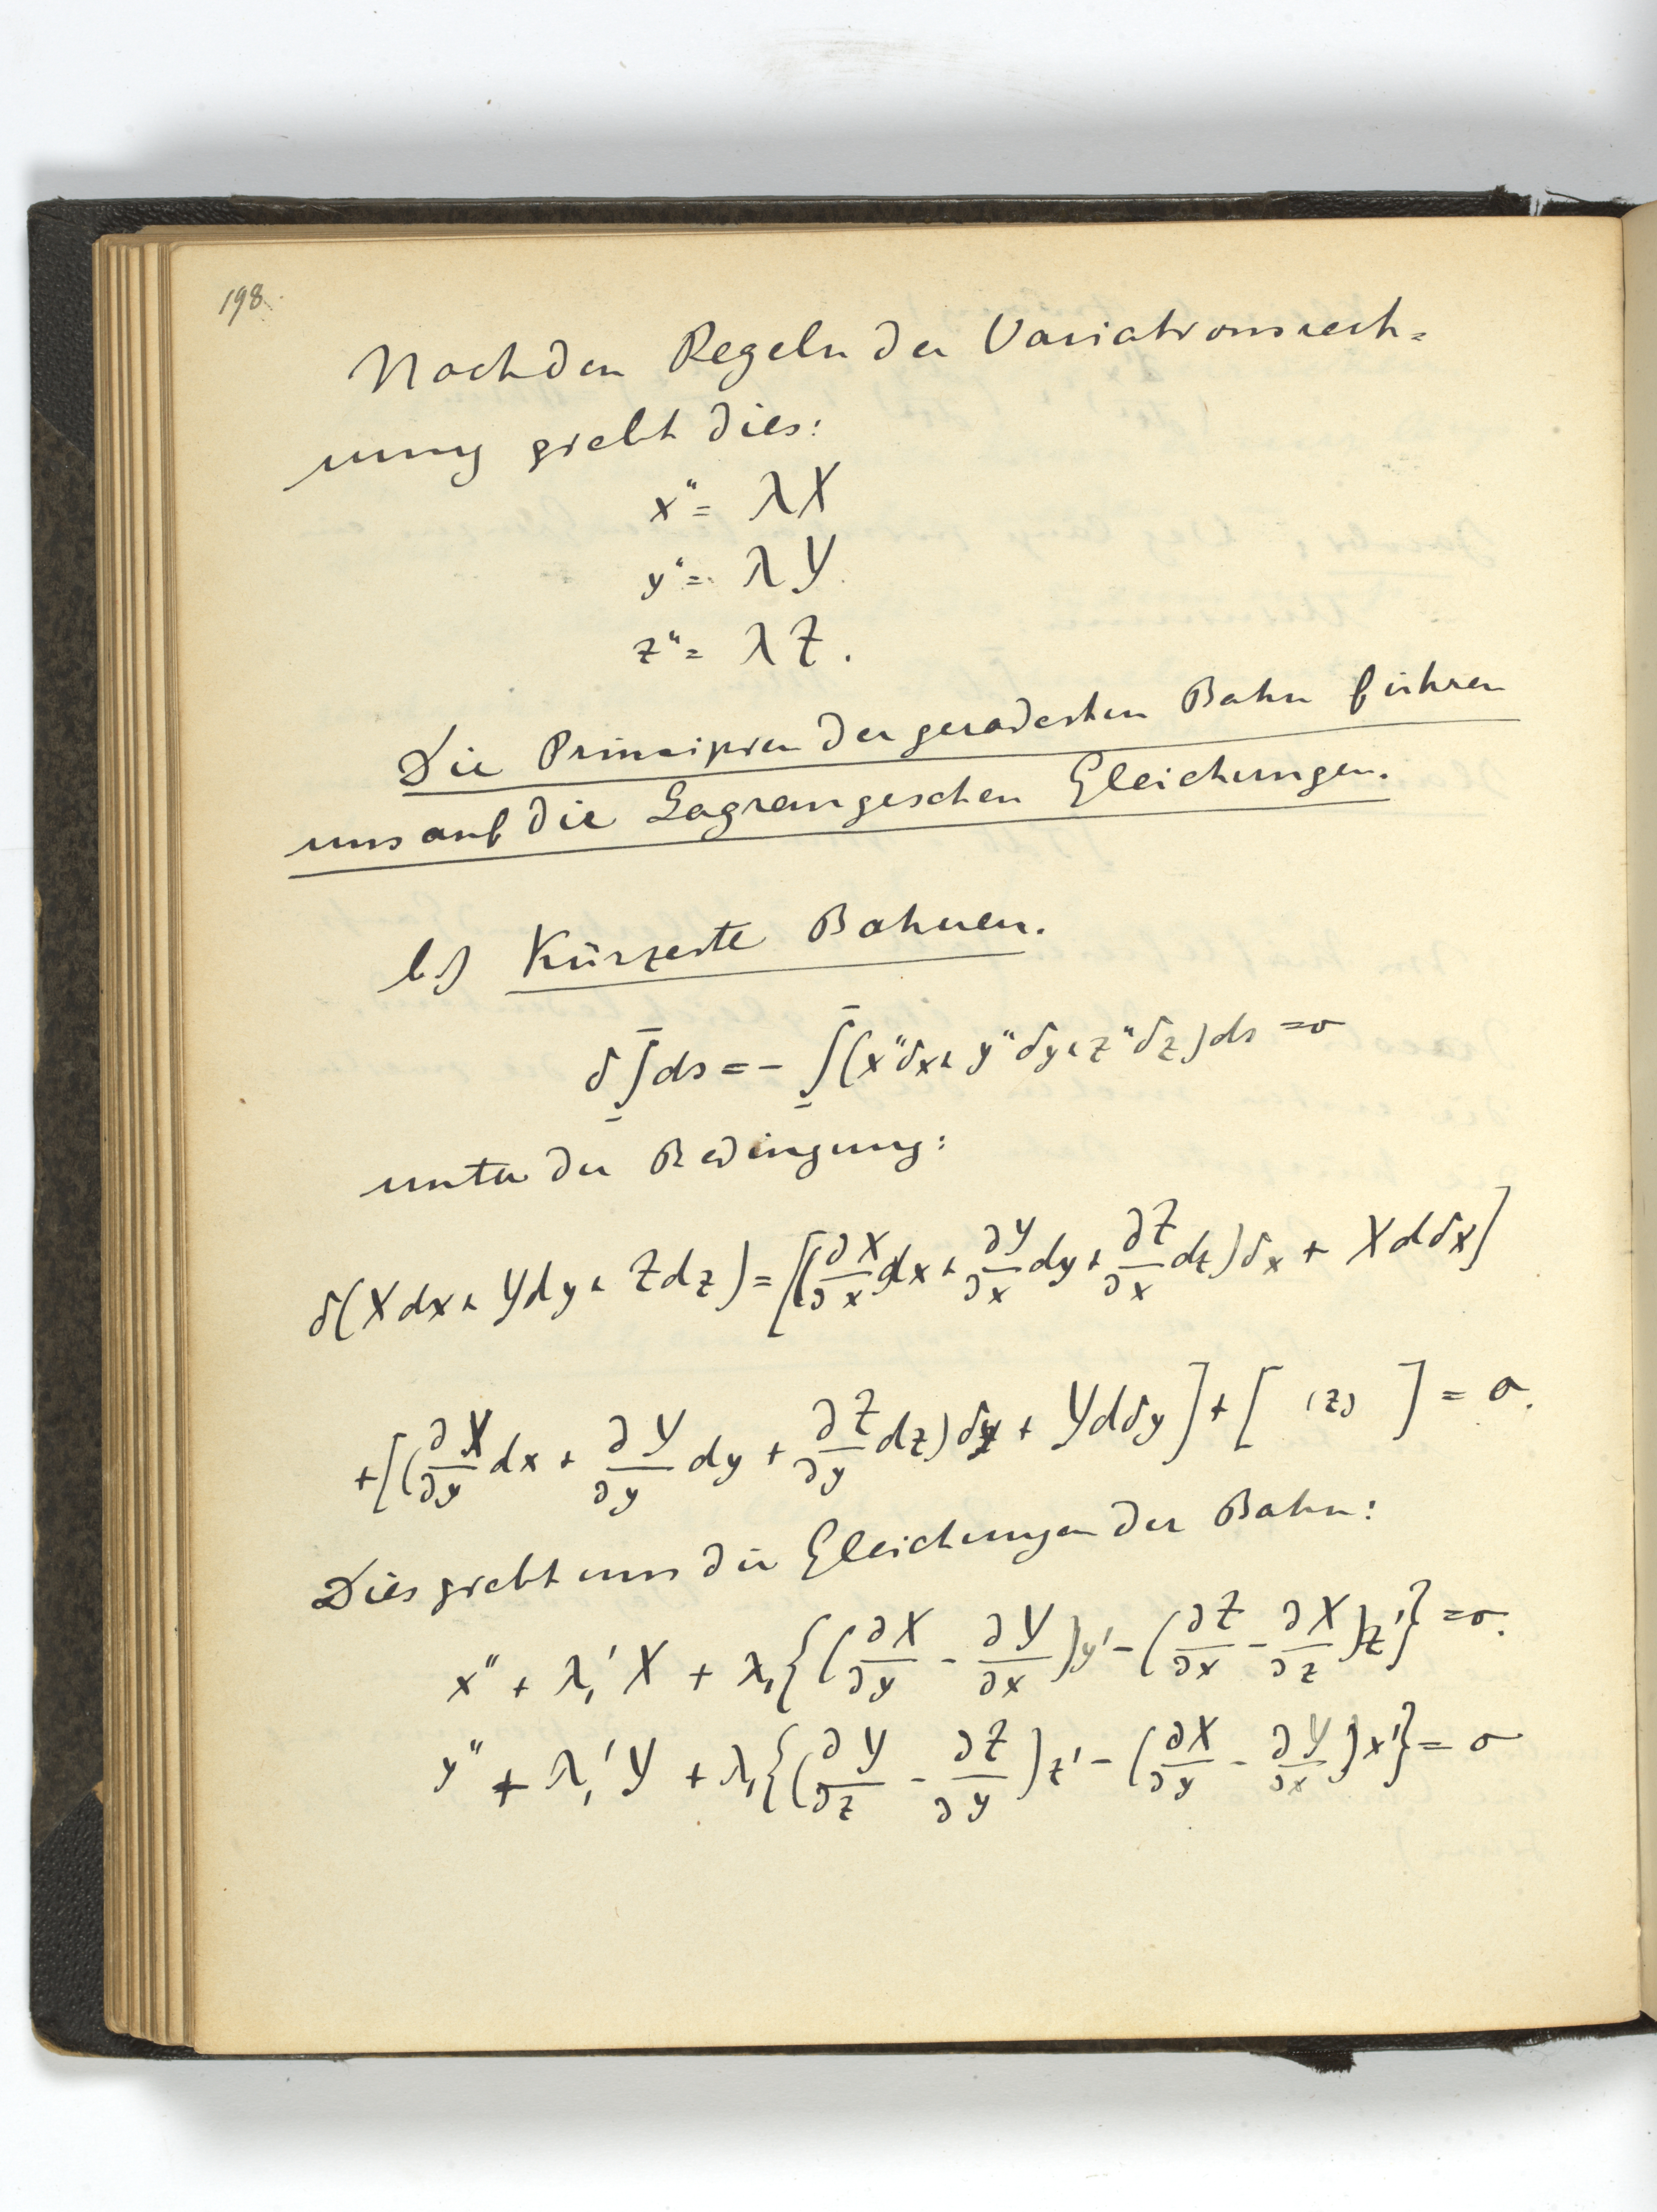 198.
Nach den Regeln der Variationsrech=
nung giebt dies:
x″ = λX
y″ = λY.
z″ = λZ.
Die Principien der geradesten Bahn führen
uns auf die Lagrangeschen Gleichungen.
b) Kürzeste Bahnen.
δ∫ds = − ∫(x″δx + y″δy + z″δz)ds = 0
unter der Bedingung:
δ(Xdx + Ydy + Zdz) = [(∂X/∂x dx + ∂Y/∂x dy + ∂Z/∂x dz)δx + Xdδx]
+[(∂X/∂y dx + ∂Y/∂y dy + ∂Z/∂y dz)δy + Ydδy] + [ (z) ] = 0.
Dies giebt uns die Gleichungen der Bahn:
x″ + λ₁′X + λ₁{(∂X/∂y − ∂Y/∂x)y′ − (∂Z/∂x − ∂X/∂z)z′} = 0.
y″ + λ₁′Y + λ₁{(∂Y/∂z − ∂Z/∂y)z′ − (∂X/∂y − ∂Y/∂x)x′} = 0